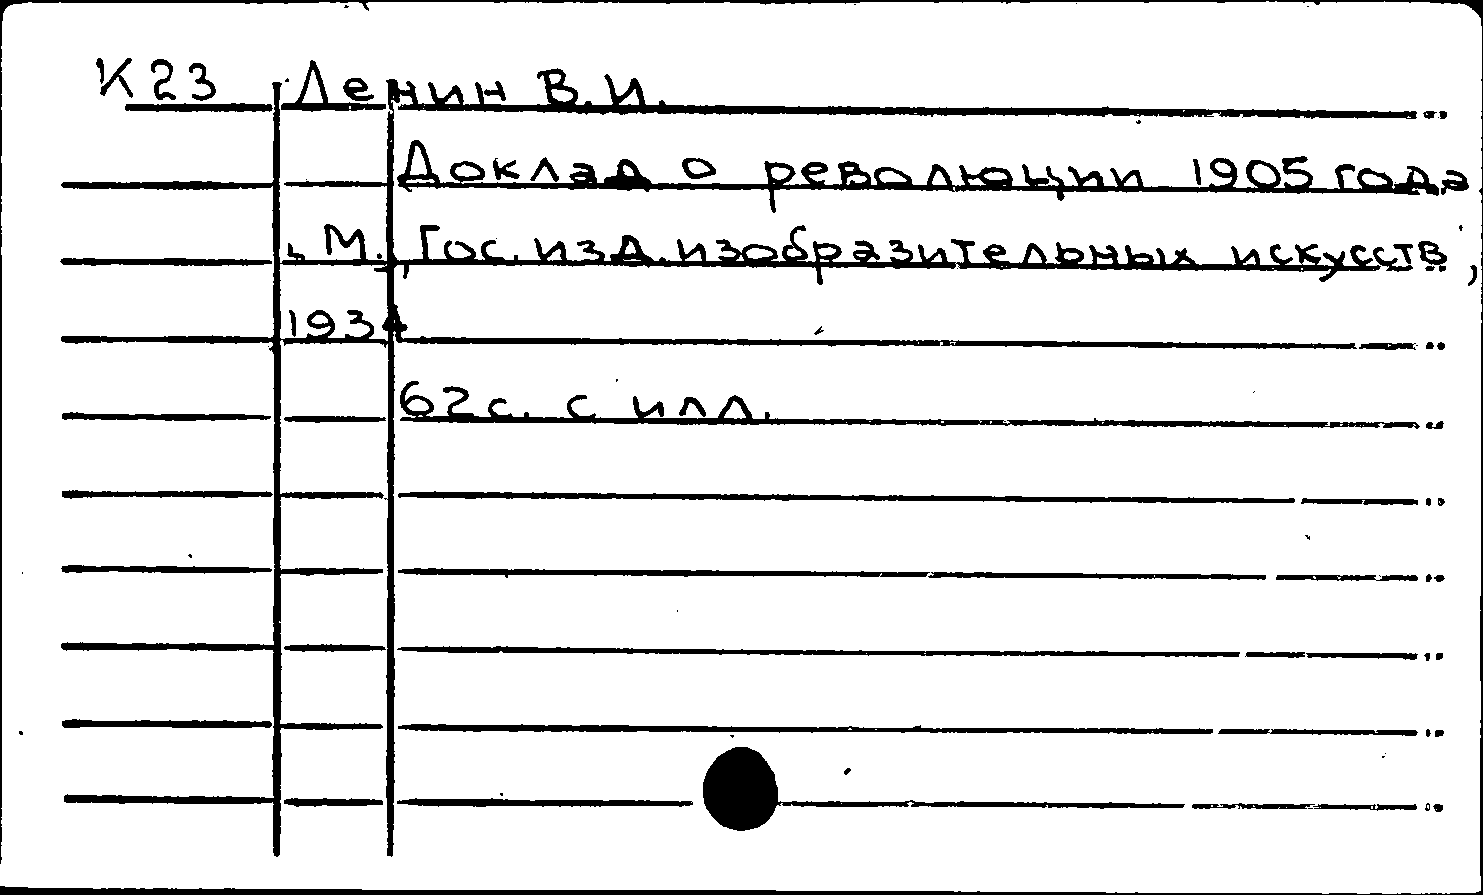 К23 Ленин В.И.
Доклад о революции 1905 года
, М., Гос. изд. изобразительных искусств,
1934
62 с. с илл.